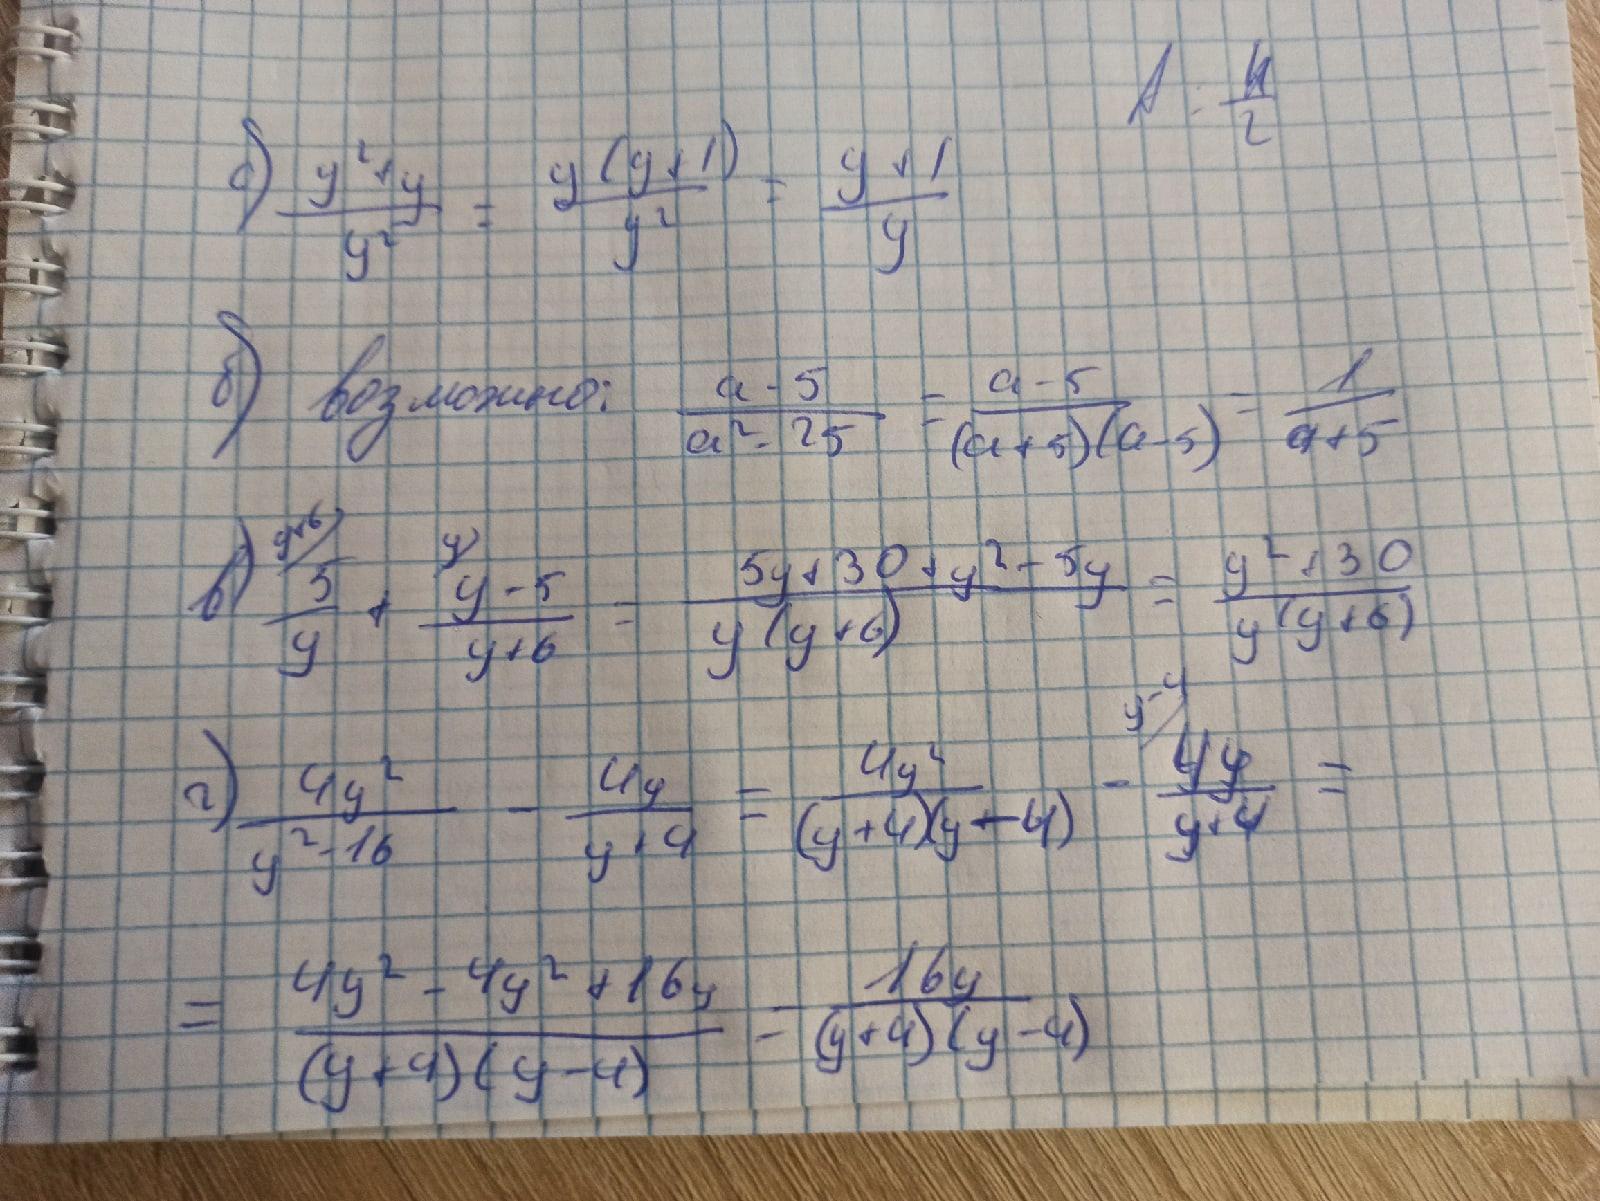 1 : 4/2
а) (y²+y)/y² = y(y+1)/y² = (y+1)/y
б) возможно: (a-5)/(a²-25) = (a-5)/((a+5)(a-5)) = 1/(a+5)
в) y+6) 5/y + y) (y-5)/(y+6) = (5y+30+y²-5y)/(y(y+6)) = (y²+30)/(y(y+6))
г) 4y²/(y²-16) - 4y/(y+4) = 4y²/((y+4)(y-4)) - y-4) 4y/(y+4) =
= (4y²-4y²+16y)/((y+4)(y-4)) = 16y/((y+4)(y-4))